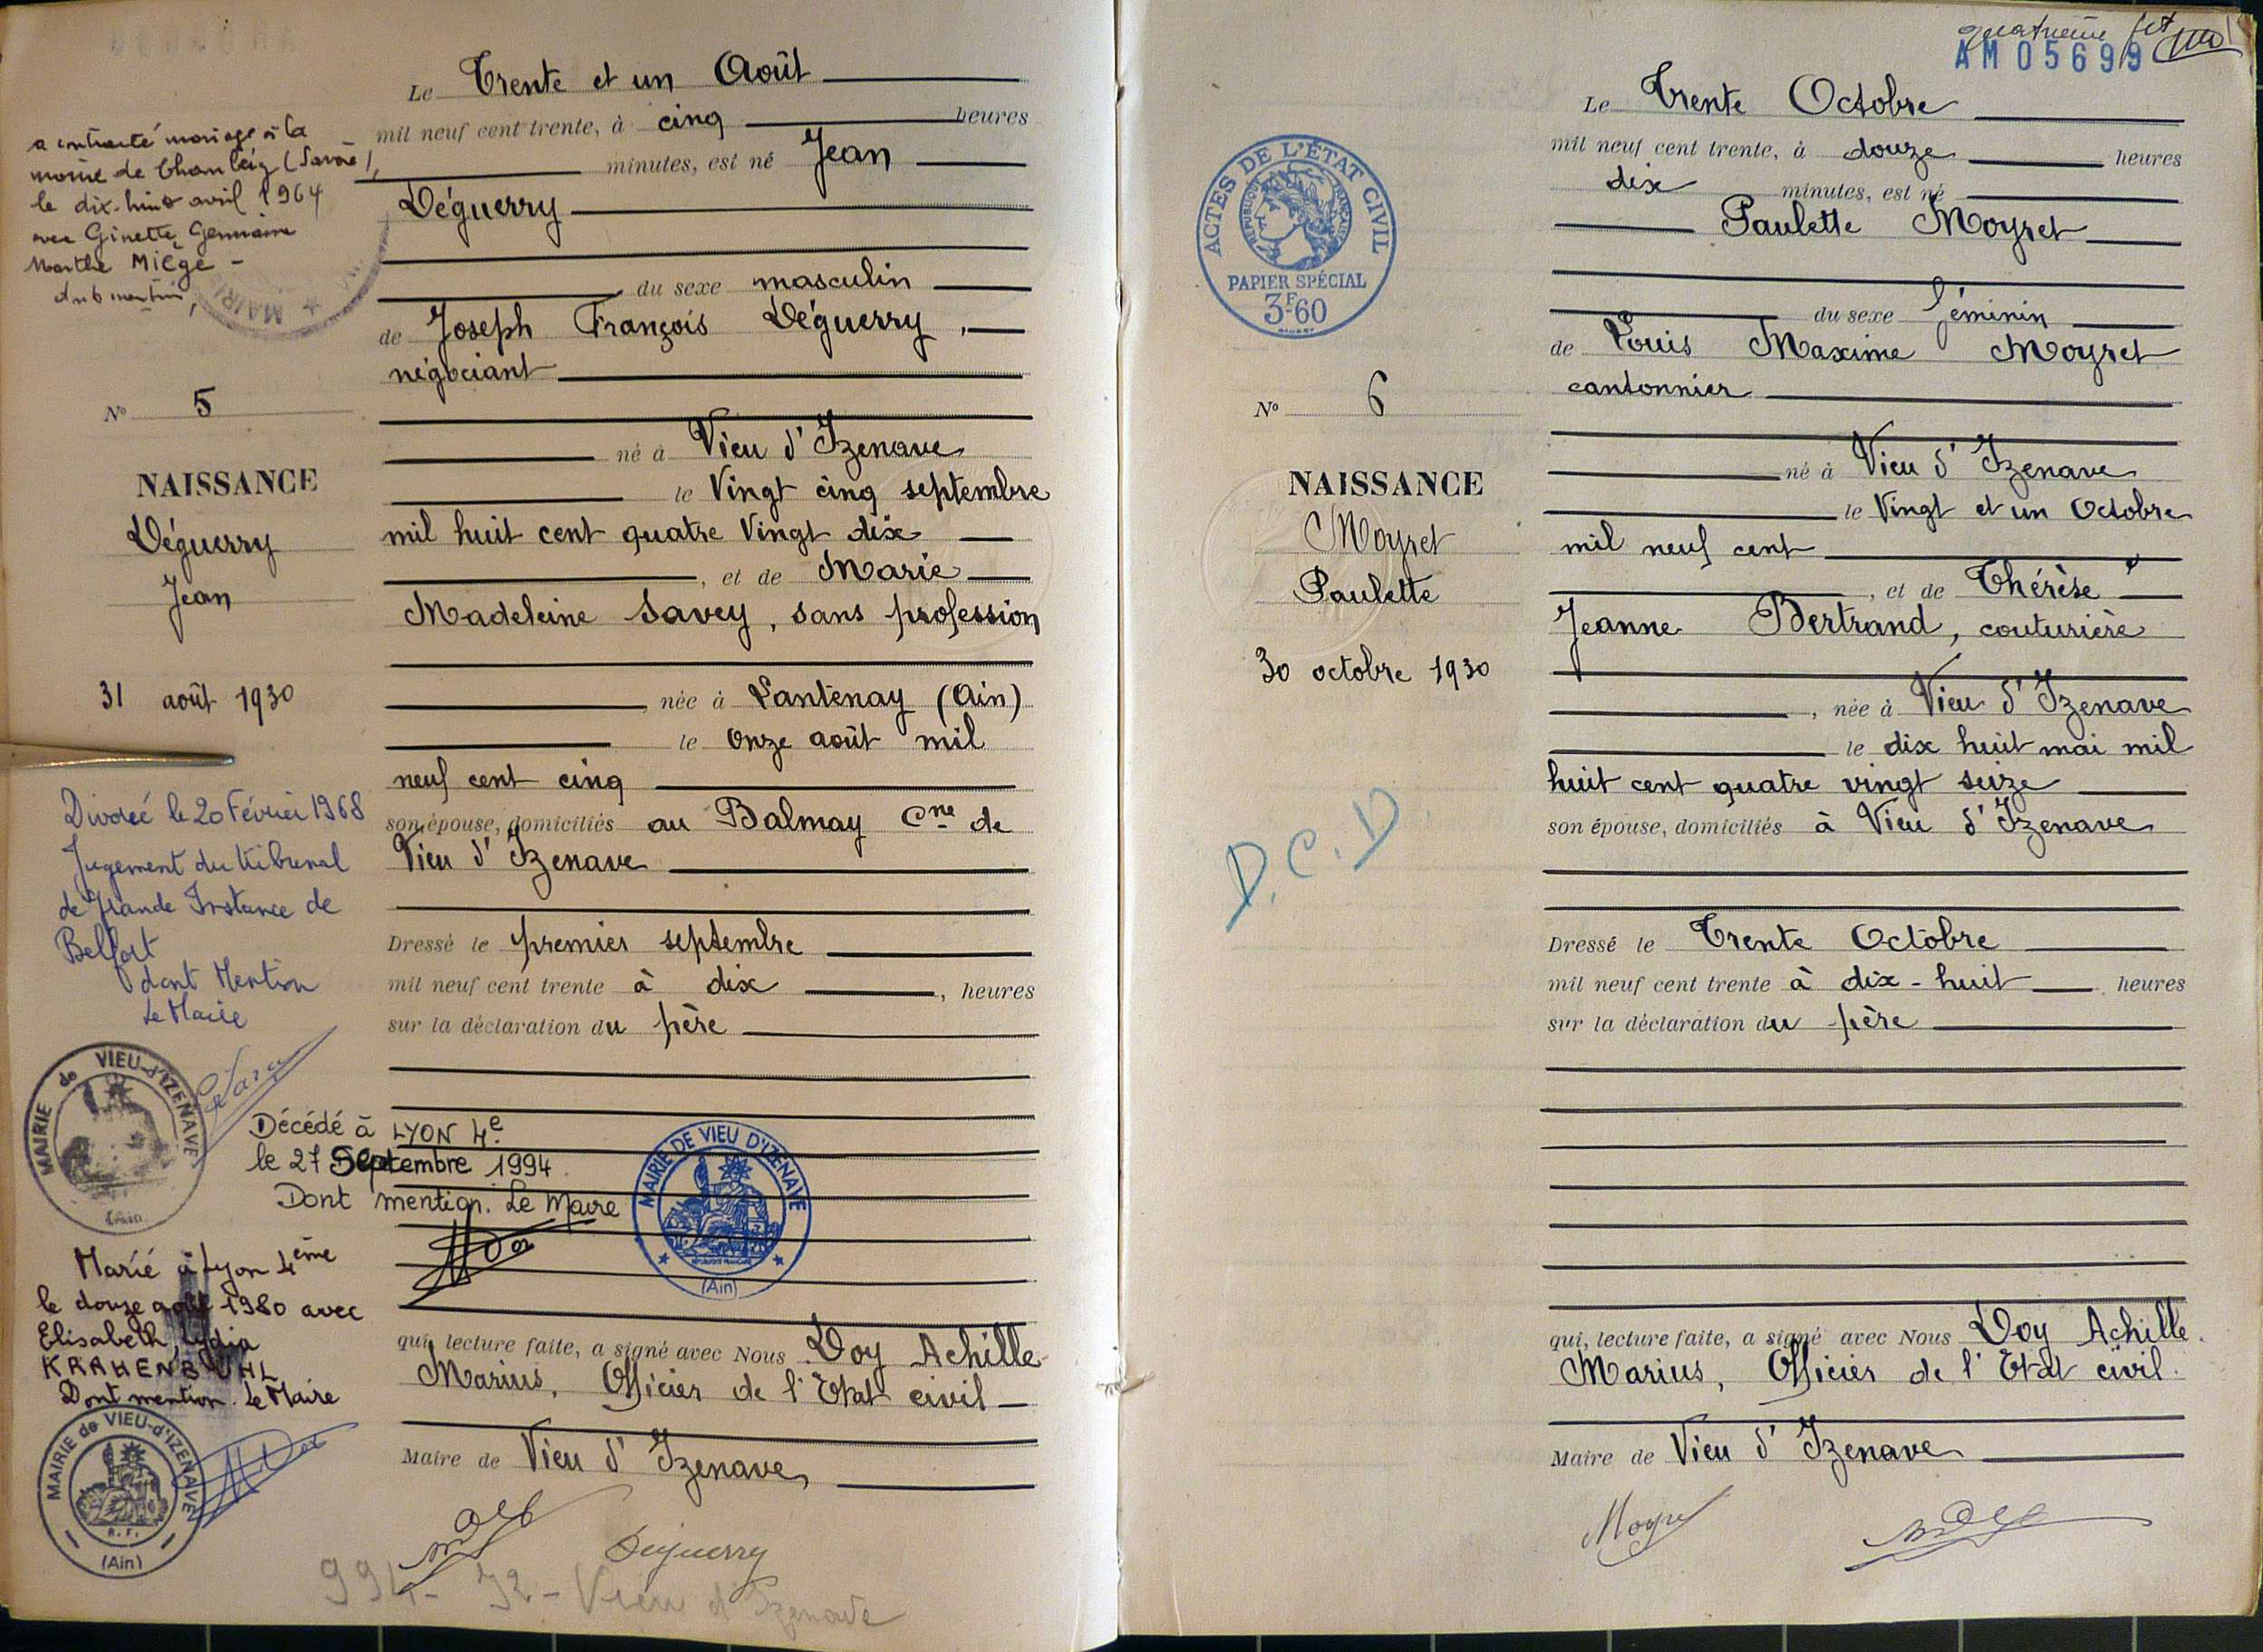 Le Trente et un Août
mil neuf cent trente, à cinq heures
minutes, est né Jean
Déguerry
du sexe masculin
de Joseph François Déguerry,
négociant
né à Vieu d'Izenave
le Vingt cinq septembre
mil huit cent quatre Vingt dix
, et de Marie
Madeleine Savey, sans profession
née à Lantenay (Ain)
le onze août mil
neuf cent cinq
son épouse, domiciliés au Balmay Cne de
Vieu d'Izenave
Dressé le premier septembre
mil neuf cent trente à dix, heures
sur la déclaration du père
qui, lecture faite, a signé avec Nous Doy Achille
Marius, Officier de l'Etat civil
Maire de Vieu d'Izenave,
Deguerry
994- 72 - Vieu d'Izenave
a contracté mariage à la
mairie de (Savoie),
le dix-huit avril 1964
avec Ginette Germaine
Marthe Miège -
MAIRIE
No 5
NAISSANCE
Déguerry
Jean
31 août 1930
Divorcé le 20 Février 1968
Jugement du tribunal
de Grande Instance de
Belfort
dont Mention
Le Maire
MAIRIE de VIEU-d'IZENAVE
(Ain)
Décédé à LYON 4e.
le 27 Septembre 1994.
Dont mention. Le Maire
MAIRIE DE VIEU D'IZENAVE
RÉPUBLIQUE FRANÇAISE
(Ain)
Marié à Lyon 4ème
le douze août 1980 avec
Elisabeth, Lydia
KRAHENBUHL
Dont mention. Le Maire
MAIRIE de VIEU-d'IZENAVE
R.F.
(Ain)
quatrième
AM 05699
ACTES DE L'ÉTAT CIVIL
RÉPUBLIQUE FRANÇAISE
PAPIER SPÉCIAL
3F60
No 6
NAISSANCE
Moyret
Paulette
30 octobre 1930
D.C.D
Le Trente Octobre
mil neuf cent trente, à douze heures
dix minutes, est né
Paulette Moyret
du sexe féminin
de Louis Maxime Moyret
cantonnier
né à Vieu d'Izenave
le Vingt et un Octobre
mil neuf cent
, et de Thérèse
Jeanne Bertrand, couturière
, née à Vieu d'Izenave
le dix huit mai mil
huit cent quatre vingt seize
son épouse, domiciliés à Vieu d'Izenave
Dressé le Trente Octobre
mil neuf cent trente à dix-huit heures
sur la déclaration du père
qui, lecture faite, a signé avec Nous Doy Achille
Marius, Officier de l'Etat civil.
Maire de Vieu d'Izenave